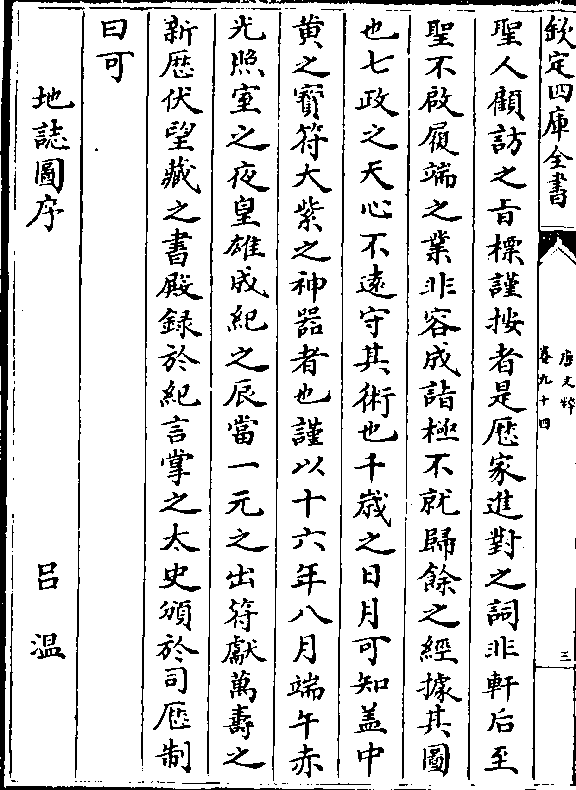 欽定四庫全書
唐文粹
卷九十四
三
聖人顧訪之㫖標謹按者是厯家進對之詞非軒后至
聖不啟履端之業非容成詣極不就歸餘之經據其圖
也七政之天心不逺守其術也千歲之日月可知盖中
黄之寳符大紫之神器者也謹以十六年八月端午赤
光照室之夜皇雄成紀之辰當一元之出符獻萬夀之
新厯伏望藏之書殿録於紀言掌之太史頒於司厯制
曰可
地誌圖序
吕温